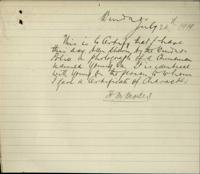 July 22nd 1914
This is to Certify that I have
this day been shown by the
Police a photograph of a Chinaman
named Young It is identical
with Young the person to whom
I gave a Certificate of Character